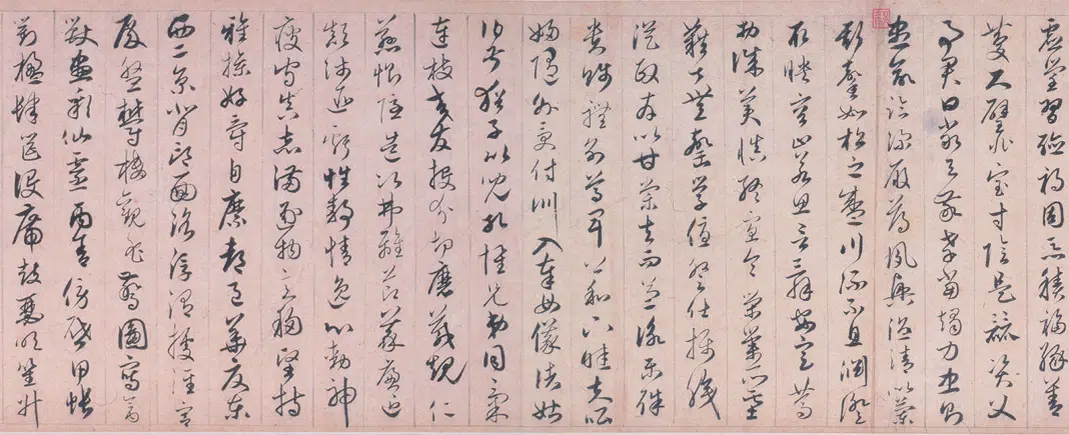 虛堂習聽禍因惡積福緣善
慶尺璧非寶寸陰是競資父
事君曰嚴與敬孝當竭力忠則
盡命臨深履薄夙興溫清似蘭
斯馨如松之盛川流不息淵澄
取映容止若思言辭安定篤
初誠美慎終宜令榮業所基
藉甚無竟學優登仕攝職
從政存以甘棠去而益詠樂殊
貴賤禮別尊卑上和下睦夫唱
婦隨外受傅訓入奉母儀諸姑
伯叔猶子比兒孔懷兄弟同氣
連枝交友投分切磨箴規仁
慈惻隱造次弗離節義廉退
顛沛匪虧性靜情逸心動神
疲守真志滿逐物意移堅持
雅操好爵自縻都邑華夏東
西二京背邙面洛浮渭據涇宮
殿盤鬱樓觀飛驚圖寫禽
獸畫彩仙靈丙舍傍啟甲帳
對楹肆筵設席鼓瑟吹笙升